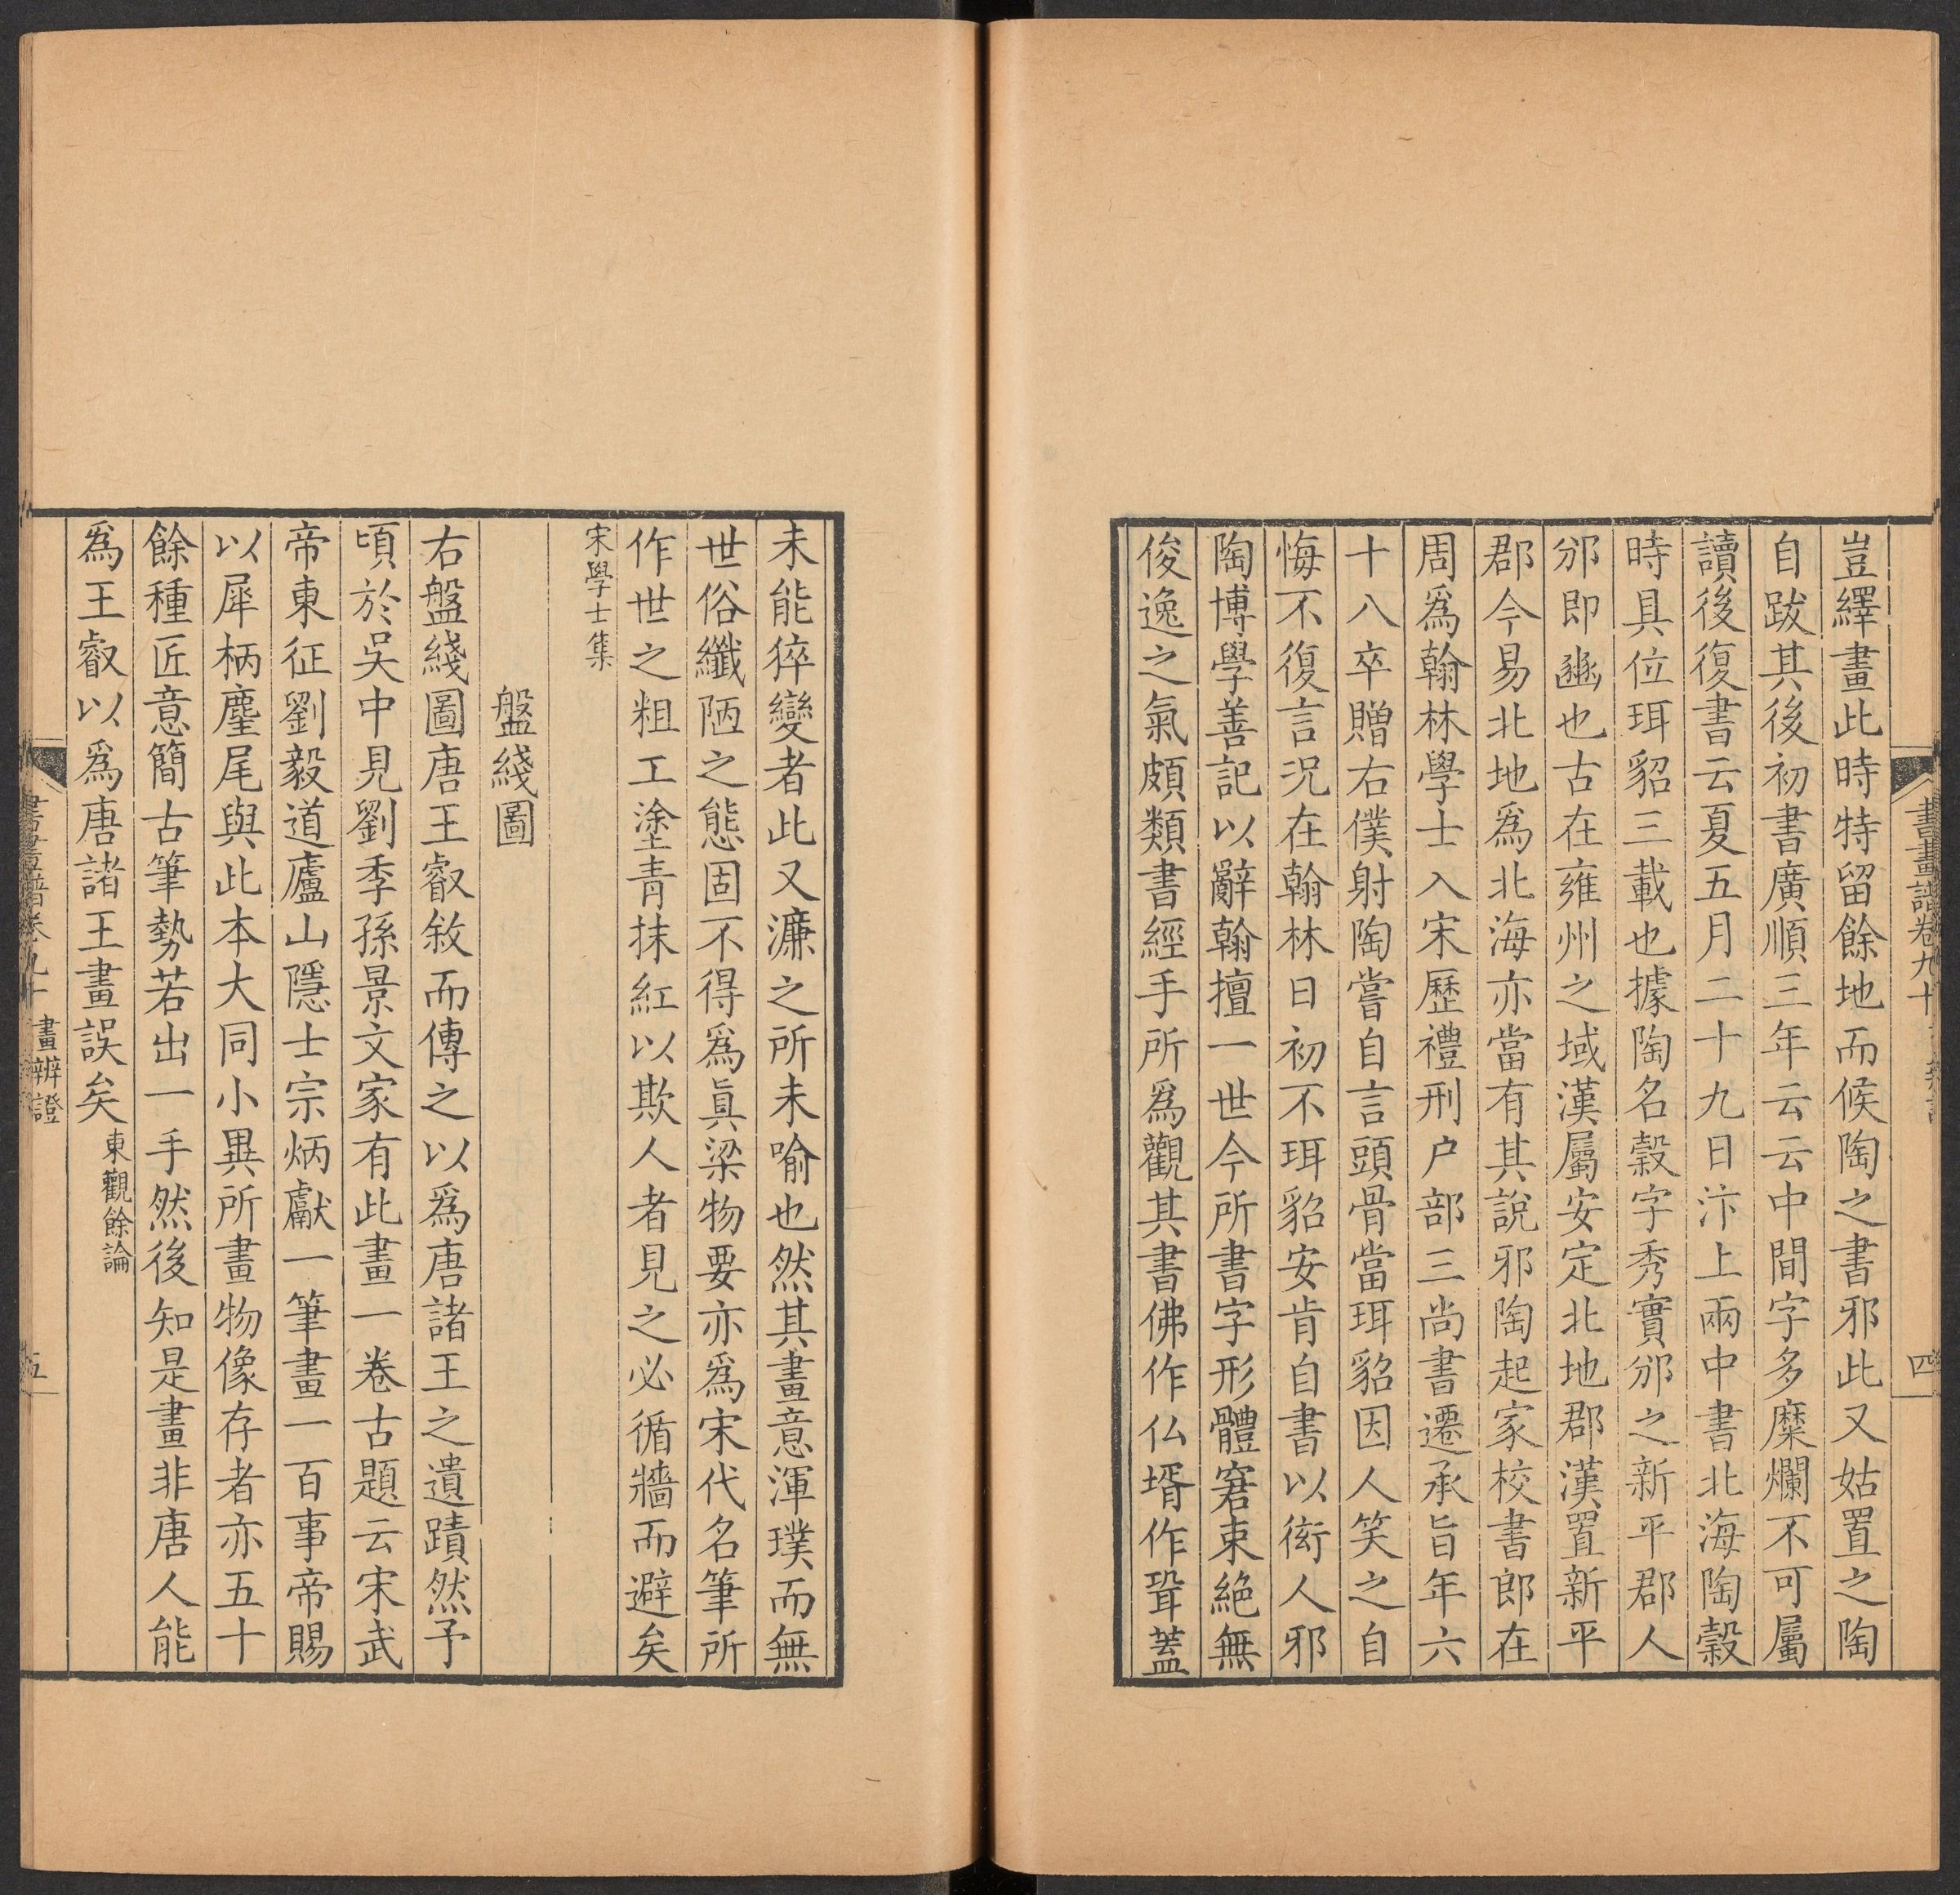 書畫譜卷九十
四
豈繹畫此時特留餘地而候陶之書邪此又姑置之陶
自跋其後初書廣順三年云云中間字多糜爛不可屬
讀後復書云夏五月二十九日汴上兩中書北海陶糓
時具位珥貂三載也據陶名糓字秀實邠之新平郡人
邠即豳也古在雍州之域漢屬安定北地郡漢置新平
郡今易北地爲北海亦當有其說邪陶起家校書郎在
周爲翰林學士入宋歷禮刑户部三尚書遷承旨年六
十八卒贈右僕射陶嘗自言頭骨當珥貂因人笑之自
悔不復言況在翰林日初不珥貂安肯自書以銜人邪
陶博學善記以辭翰擅一世今所書字形體窘束絕無
俊逸之氣頗類書經手所爲觀其書佛作仏壻作聓蓋
未能猝變者此又濂之所未喻也然其畫意渾璞而無
世俗纖陋之態固不得爲眞梁物要亦爲宋代名筆所
作世之粗工塗青抹紅以欺人者見之必循牆而避矣
宋學士集
盤綫圖
右盤綫圖唐王叡敘而傳之以爲唐諸王之遺蹟然予
頃於吴中見劉季孫景文家有此畫一卷古題云宋武
帝東征劉毅道廬山隱士宗炳獻一筆畫一百事帝賜
以犀柄麈尾與此本大同小異所畫物像存者亦五十
餘種匠意簡古筆勢若出一手然後知是畫非唐人能
爲王叡以爲唐諸王畫誤矣東觀餘論
書畫譜卷九十 畫辨證
五